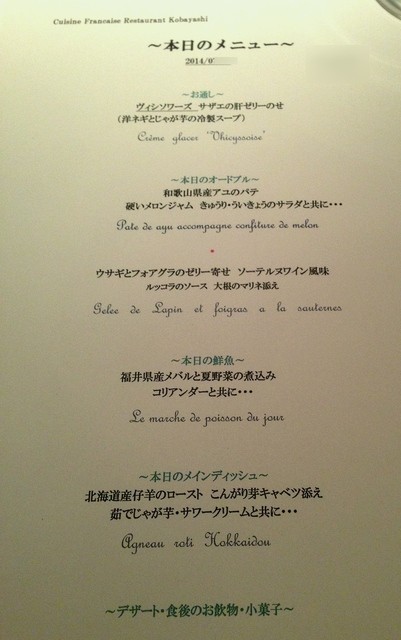 Cuisine Francaise Restaurant Kobayashi
～本日のメニュー～
2014/0
～お通し～
ヴィシソワーズ サザエの肝ゼリーのせ
（洋ネギとじゃが芋の冷製スープ）
Crème glacer "Vhicyssoise"
～本日のオードブル～
和歌山県産アユのパテ
硬いメロンジャム きゅうり・ういきょうのサラダと共に・・・
Pate de ayu accompagne confiture de melon
*
ウサギとフォアグラのゼリー寄せ ソーテルヌワイン風味
ルッコラのソース 大根のマリネ添え
Gelee de Lapin et foigras a la sauternes
～本日の鮮魚～
福井県産メバルと夏野菜の煮込み
コリアンダーと共に・・・
Le marche de poisson du jour
～本日のメインディッシュ～
北海道産仔羊のロースト こんがり芽キャベツ添え
茹でじゃが芋・サワークリームと共に・・・
Agneau roti Hokkaidou
～デザート・食後のお飲物・小菓子～